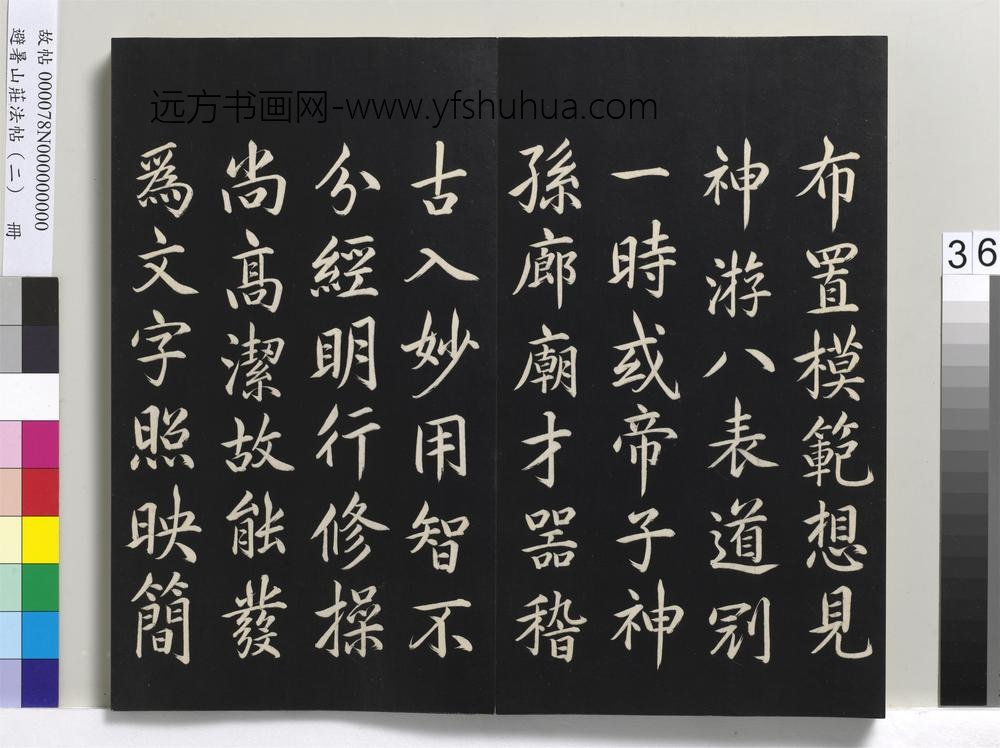 远方书画网-www.yfshuhua.com
布置模範想見
神游八表道冠
一時或帝子神
孫廊廟才器稽
古入妙用智不
分經明行修操
尚髙潔故能發
爲文字照映簡
故帖 000078N000000000
避暑山莊法帖(二) 冊
36